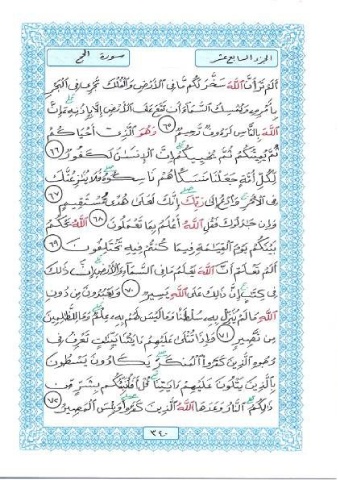 الجزء السابع عشر
سورة الحج
ألم تر أن الله سخر لكم ما في الأرض والفلك تجري في البحر
بأمره ويمسك السماء أن تقع على الأرض إلا بإذنه إن
الله بالناس لرءوف رحيم ٦٥ وهو الذي أحياكم
ثم يميتكم ثم يحييكم إن الإنسان لكفور ٦٦
لكل أمة جعلنا منسكا هم ناسكوه فلا ينازعنك
في الأمر وادع إلى ربك إنك لعلى هدى مستقيم ٦٧
وإن جادلوك فقل الله أعلم بما تعملون ٦٨ الله يحكم
بينكم يوم القيامة فيما كنتم فيه تختلفون ٦٩
ألم تعلم أن الله يعلم ما في السماء والأرض إن ذلك
في كتاب إن ذلك على الله يسير ٧٠ ويعبدون من دون
الله ما لم ينزل به سلطانا وما ليس لهم به علم وما للظالمين
من نصير ٧١ وإذا تتلى عليهم آياتنا بينات تعرف في
وجوه الذين كفروا المنكر يكادون يسطون
بالذين يتلون عليهم آياتنا قل أفأنبئكم بشر من
ذلكم النار وعدها الله الذين كفروا وبئس المصير ٧٢
٣٤٠